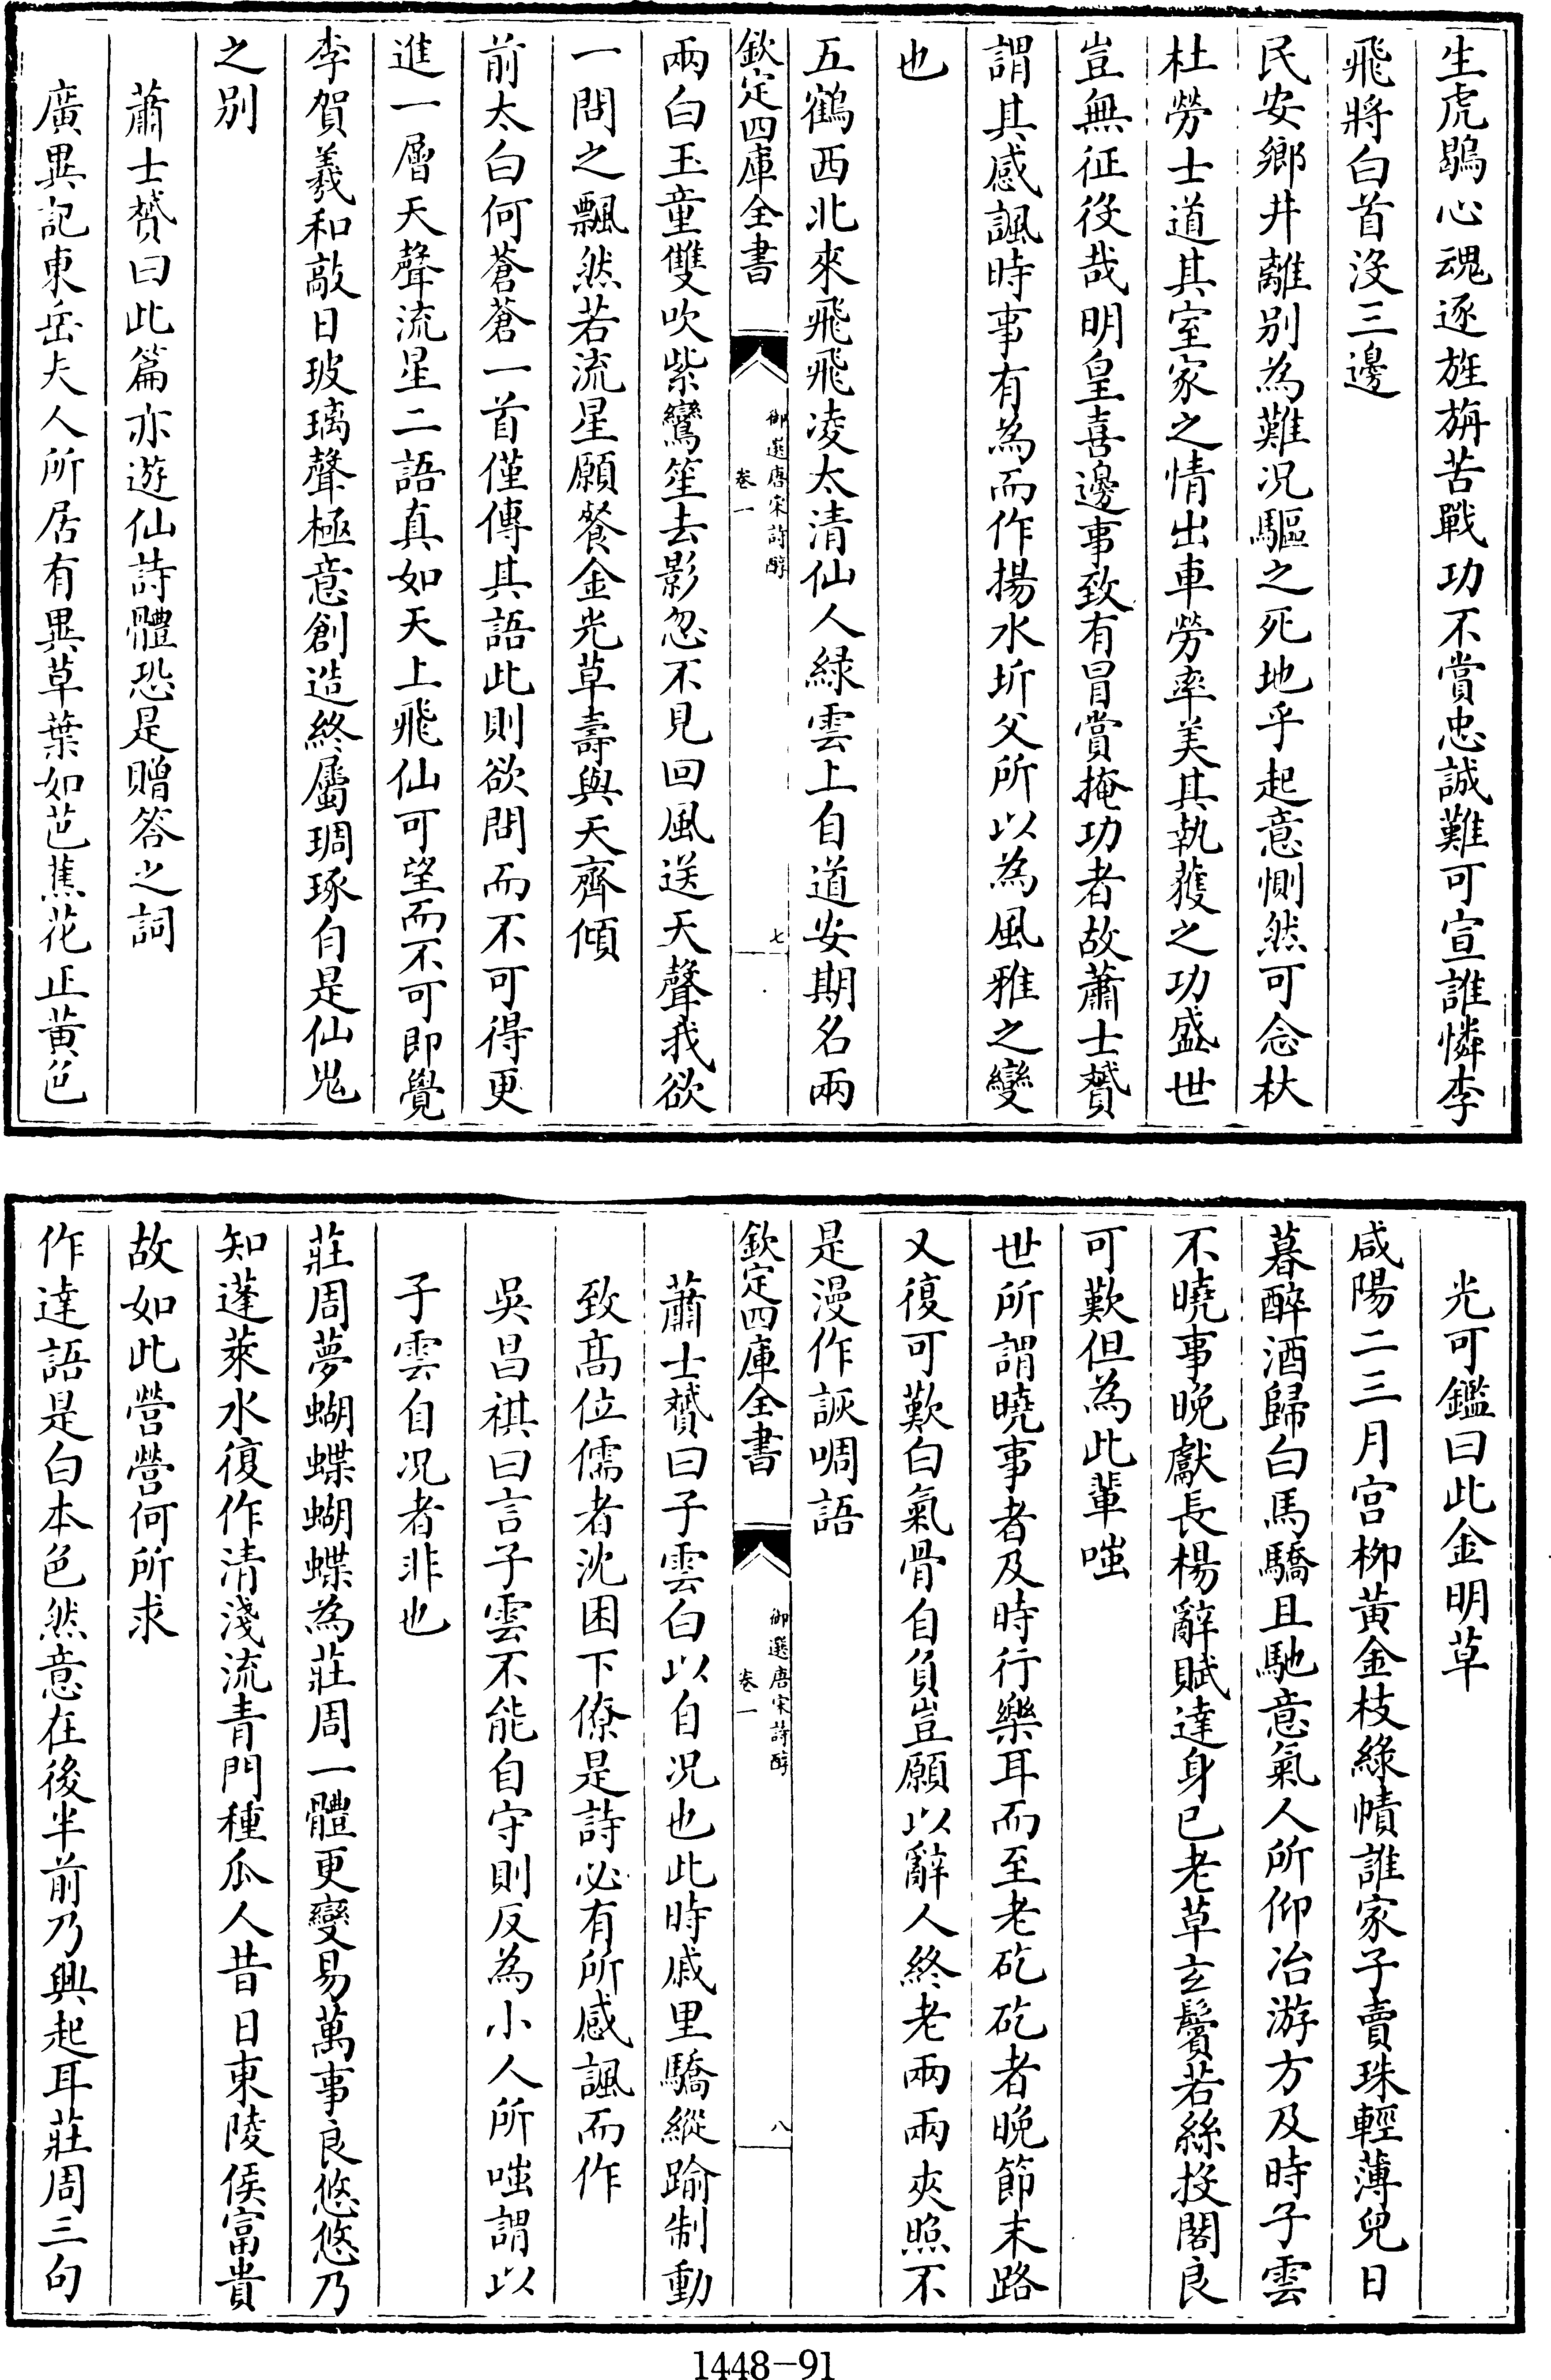 生虎鶡心魂逐旌旃苦戰功不賞忠誠難可宣誰憐李
飛將白首没三邊
民安鄉井離别為難况驅之死地乎起意惻然可念杕
杜勞士道其室家之情出車勞率美其執獲之功盛世
豈無征役哉明皇喜邊事致有冒賞掩功者故蕭士贇
謂其感諷時事有為而作揚水圻父所以為風雅之變
也
五鶴西北來飛飛凌太清仙人緑雲上自道安期名兩
欽定四庫全書
御選唐宋詩醇
卷一
七
兩白玉童雙吹紫鸞笙去影忽不見回風送天聲我欲
一問之飄然若流星願餐金光草壽與天齊傾
前太白何蒼蒼一首僅傳其語此則欲問而不可得更
進一層天聲流星二語真如天上飛仙可望而不可即覺
李賀羲和敲日玻璃聲極意創造終屬琱琢自是仙鬼
之别
蕭士贇曰此篇亦遊仙詩體恐是贈答之詞
廣異記東岳夫人所居有異草葉如芭蕉花正黄色
光可鑑曰此金明草
咸陽二三月宫柳黄金枝緑幘誰家子賣珠輕薄兒日
暮醉酒歸白馬驕且馳意氣人所仰冶游方及時子雲
不曉事晚獻長楊辭賦達身已老草玄鬢若絲投閣良
可歎但為此輩嗤
世所謂曉事者及時行樂耳而至老矻矻者晚節末路
又復可歎白氣骨自負豈願以辭人終老兩兩夾照不
是漫作詼啁語
欽定四庫全書
御選唐宋詩醇
卷一
八
蕭士贇曰子雲白以自况也此時戚里驕縱踰制動
致髙位儒者沈困下僚是詩必有所感諷而作
吳昌祺曰言子雲不能自守則反為小人所嗤謂以
子雲自况者非也
莊周夢蝴蝶蝴蝶為莊周一體更變易萬事良悠悠乃
知蓬萊水復作清淺流青門種瓜人昔日東陵侯富貴
故如此營營何所求
作達語是白本色然意在後半前乃興起耳莊周三句
1448-91